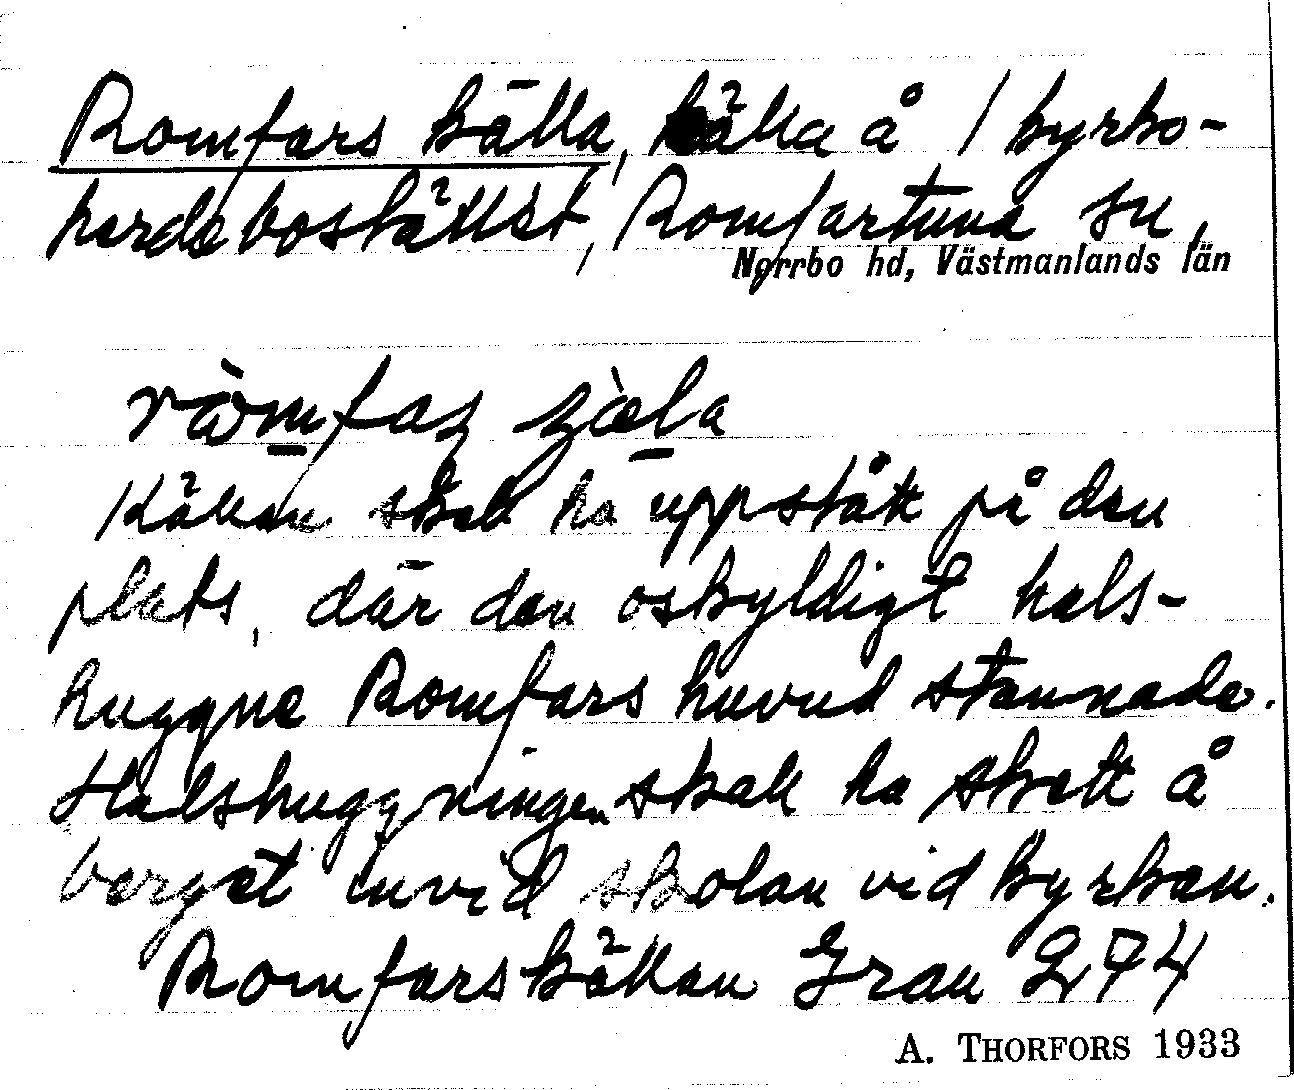 Romfars källa, källa å / kyrko-
herdebostället, Romfartuna sn,
Norrbo hd, Västmanlands län
Källan skall ha uppstått på den
plats, där den oskyldigt hals-
huggne Romfars huvud stannade.
Halshuggningen skall ha skett å
berget invid skolan vid kyrkan.
Romfarskällan Grau 274
A. THORFORS 1933